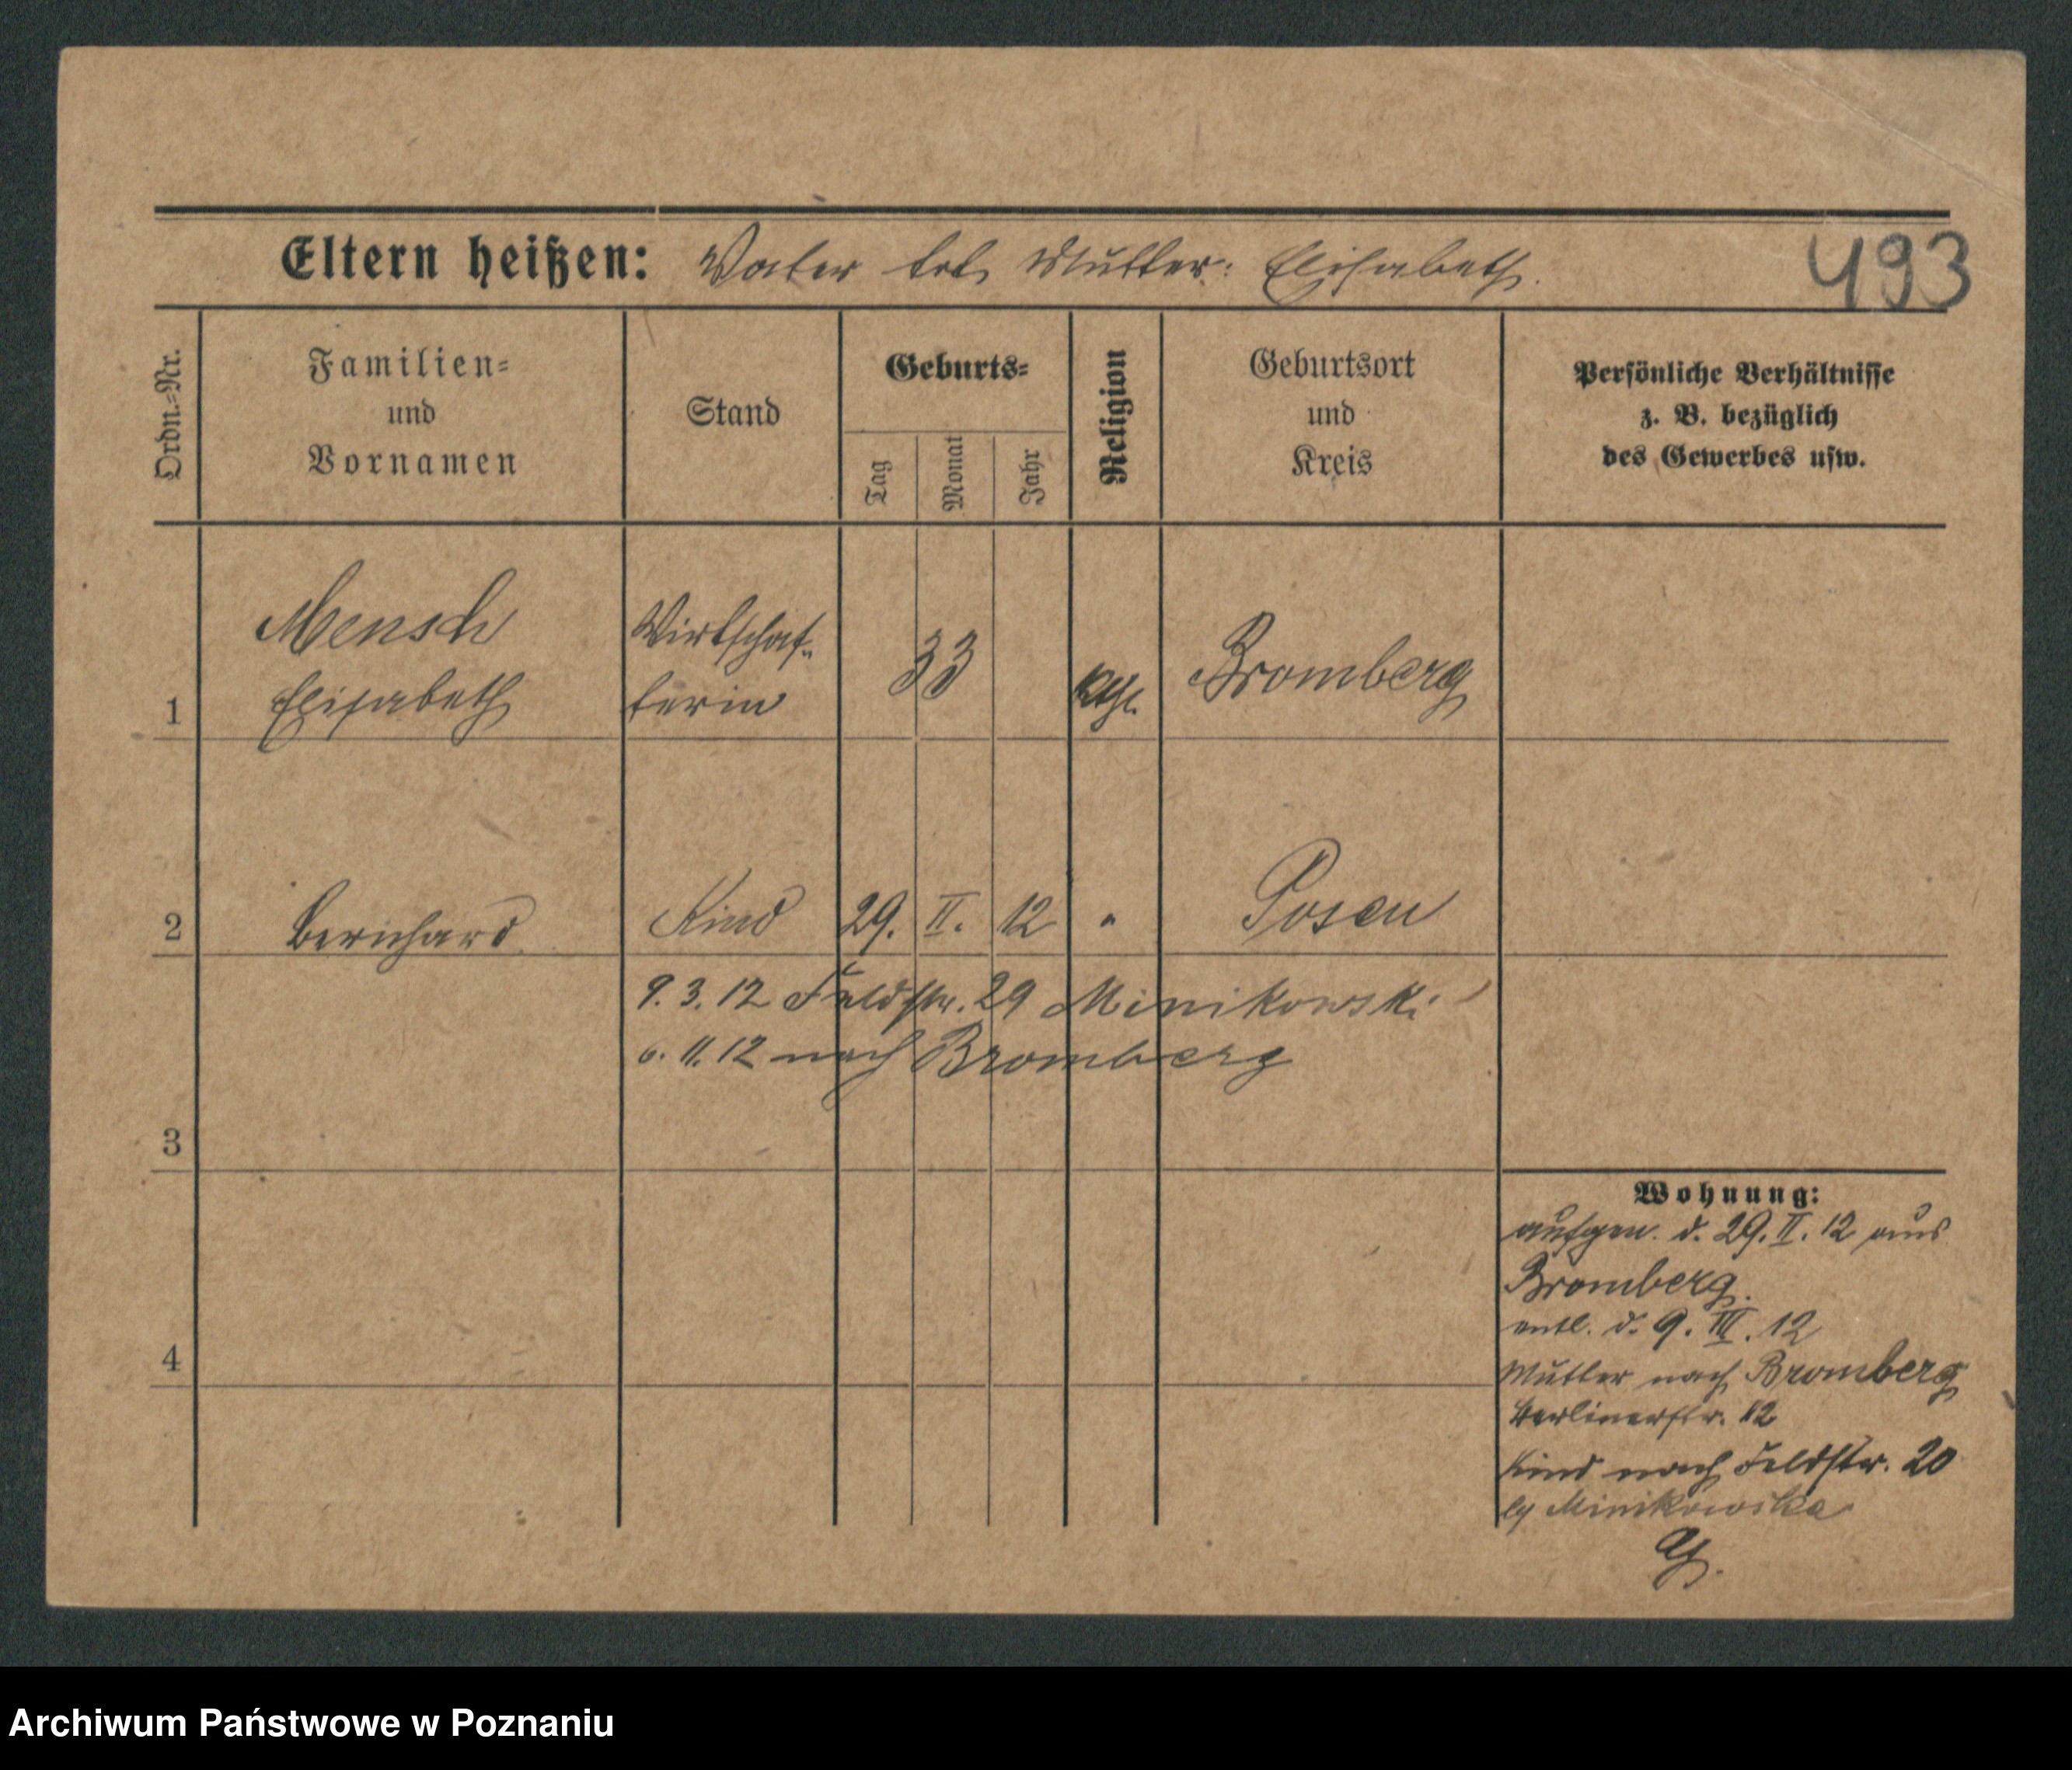 Eltern heißen: Vater tot, Mutter: Elisabeth.
493
Ordn.-Nr.
Familien-
und
Vornamen
Stand
Geburts-
Tag
Monat
Jahr
Religion
Geburtsort
und
Kreis
Persönliche Verhältnisse
z. B. bezüglich
des Gewerbes usw.
Mensch Wirtschaf-
1 Elisabeth terin 33 Kth. Bromberg
2 Bernhard Kind 29. II. 12 " Posen
9. 3. 12 Feldstr. 29 Minikowski
11. 12 nach Bromberg
3
4
Wohnung:
aufgen. d. 29. II. 12 aus
Bromberg.
entl. d. 9. III. 12
Mutter nach Bromberg
Berlinerstr. 12
Kind nach Feldstr. 20
Minikowska
Archiwum Państwowe w Poznaniu